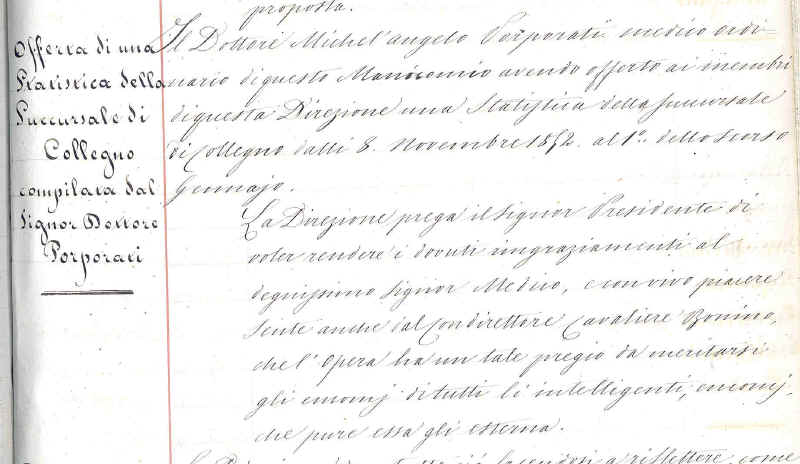 proposta.
Offerta di una
Statistica della
Succursale di
Collegno
compilata dal
Signor Dottore
Porporati
Il Dottore Michel'angelo Porporati medico ordi=
nario di questo Manicomio avendo offerto ai membri
di questa Direzione una Statistica della succursale
di Collegno dalli 8. Novembre 1852. al 1°. dello scorso
Gennajo.
La Direzione prega il Signor Presidente di
voler rendere i dovuti ringraziamenti al
degnissimo Signor Medico, e con vivo piacere
sente anche dal Condirettore Cavaliere Bonino,
che l'opera ha un tale pregio da meritarsi
gli encomj di tutti li intelligenti, encomj,
che pure essa gli esterna.
La Direzione facendosi a riflettere come